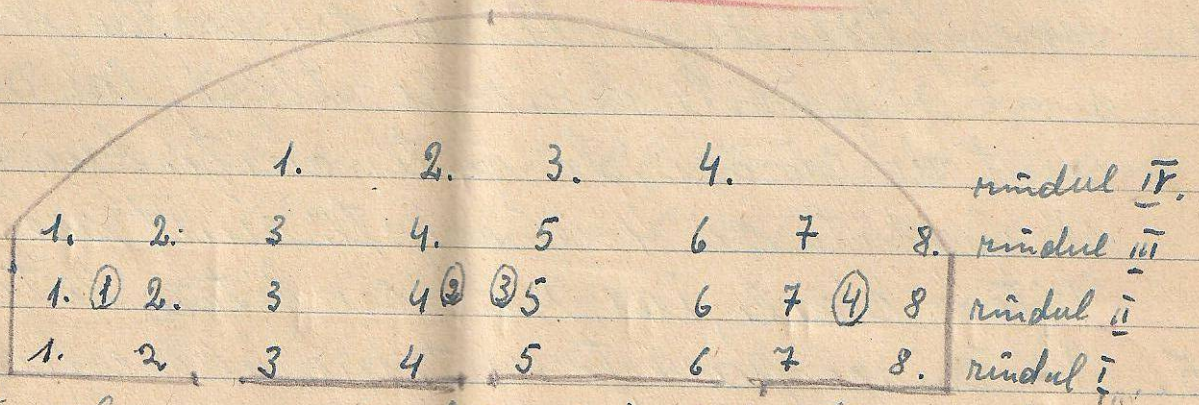 1. 2. 3. 4. rîndul IV.
1. 2. 3 4. 5 6 7 8. rîndul III
1. 1 2. 3 4 2 3 5 6 7 4 8 rîndul II
1. 2 3 4 5 6 7 8. rîndul I